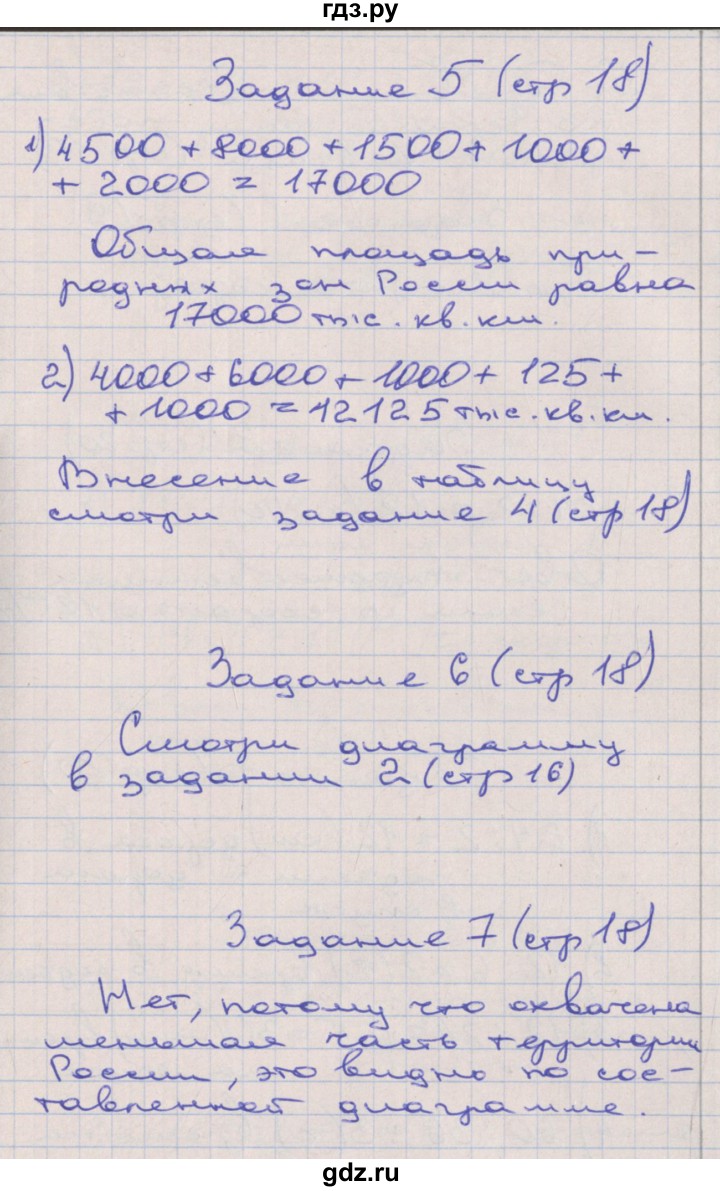 гдз.ру
Задание 5 (стр 18)
1) 4500 + 8000 + 1500 + 1000 +
+ 2000 = 17000
Общая площадь при-
родных зон России равна
17000 тыс. кв. км.
2) 4000 + 6000 + 1000 + 125 +
+ 1000 = 12125 тыс. кв. км.
Внесение в таблицу
смотри задание 4 (стр 18)
Задание 6 (стр 18)
Смотри диаграмму
в задании 2 (стр 16)
Задание 7 (стр 18)
Нет, потому что охвачена
меньшая часть территории
России, это видно по сос-
тавленной диаграмме.
gdz.ru